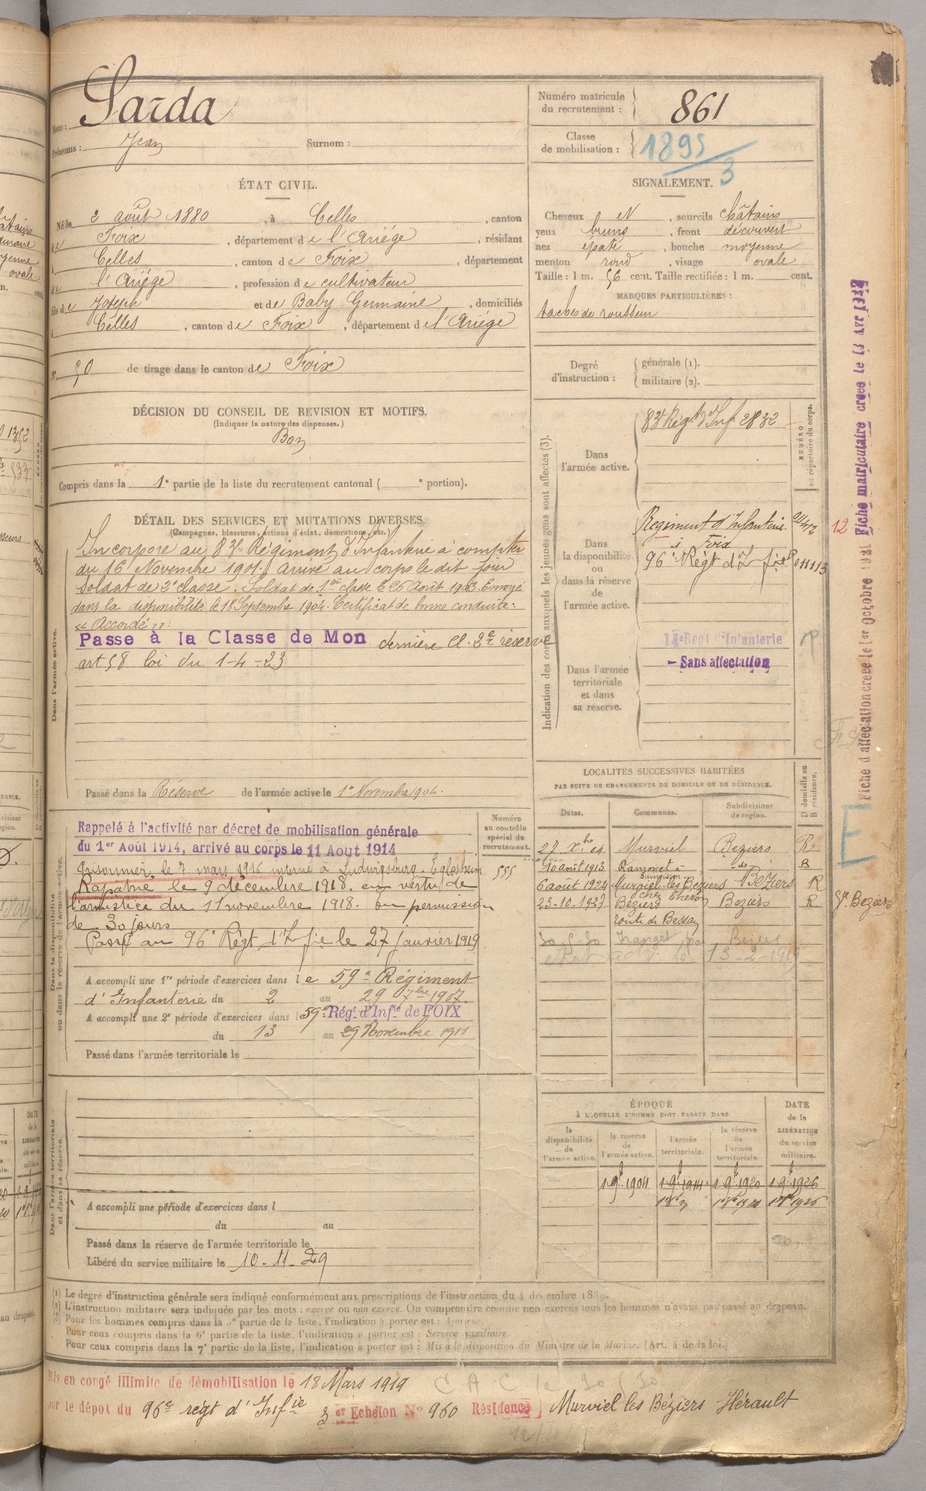 Sarda
Nom :
Prénoms : Jean Surnom :
Numéro matricule du recrutement : 861
Classe de mobilisation : 1895/3
ÉTAT CIVIL.
Né le 2 août 1880, à Celles, canton
de Foix, département de l'Ariége, résidant
à Celles, canton de Foix, département
de l'Ariége, profession de cultivateur
fils de Joseph et de Baby Germaine, domiciliés
à Celles, canton de Foix, département de l'Ariége
N° 50 de tirage dans le canton de Foix
SIGNALEMENT.
Cheveux et N, sourcils châtains
yeux bruns, front découvert
nez épaté, bouche moyenne
menton rond, visage ovale
Taille : 1 m. 56 cent. Taille rectifiée : 1 m. cent.
MARQUES PARTICULIÈRES :
taches de rousseur
Degré d'instruction : générale (1).
militaire (2).
DÉCISION DU CONSEIL DE REVISION ET MOTIFS.
(Indiquer la nature des dispenses.)
Bon
Compris dans la 1e partie de la liste du recrutement cantonal ( e portion).
DÉTAIL DES SERVICES ET MUTATIONS DIVERSES.
(Campagnes, blessures, actions d'éclat, décorations, etc.)
Incorporé au 83e Régiment d'Infanterie à compter
du 16 Novembre 1901. Arrivé au corps le dit jour
Soldat de 2e classe. Soldat de 1ère classe le 26 Août 1903. Envoyé
dans la disponibilité le 18 Septembre 1904. Certificat de bonne conduite
"Accordé"
Passé à la Classe de Mon dernière Cl. 2e réserve
art 58 loi du 1-4-23
Dans l'armée active.
Passé dans la Réserve de l'armée active le 1er Novembre 1904.
Indication des corps auxquels les jeunes gens sont affectés (3).
Dans l'armée active.
83e Régt d'Inf 2832
NUMÉRO au répertoire du corps.
Dans la disponibilité ou dans la réserve de l'armée active.
Régiment d'Infanterie
à Foix
96e Régt d'Inf
Dans l'armée territoriale et dans sa réserve.
Régt d'Infanterie
- Sans affectation
Fiche d'affectation créée le 1er Octobre 1921 Fiche matriculaire créée le 13 Avr
12
Rappelé à l'activité par décret de mobilisation générale
du 1er Août 1914, arrivé au corps le 11 Août 1914
Prisonnier le 7 mars 1916 interné à Ludwigsburg-Eglosheim
Rapatrié le 9 décembre 1918. en vertu de
l'armistice du 11 novembre 1918. En permission
de 30 jours
Passé au 96e Régt d'Inf ie le 27 janvier 1919.
Numéro au contrôle spécial du recrutement.
555
A accompli une 1re période d'exercices dans le 59e Régiment
d'Infanterie du 2 au 29 7bre 1907.
A accompli une 2e période d'exercices dans l 59e Régt d'Infie de FOIX
du 13 au 29 Novembre 1911
Passé dans l'armée territoriale le
LOCALITES SUCCESSIVES HABITÉES
PAR SUITE DE CHANGEMENTS DE DOMICILE OU DE RÉSIDENCE.
Dates. Communes. Subdivisions de région. D domicile ou R résidence.
Murviel Béziers R
10 août 1913 R
6 août 1924 Murviel-les-Béziers Béziers R
23-10-1927 Béziers Béziers R
route de Bessan
Sn Béziers
E
ÉPOQUE
À LAQUELLE L'HOMME DOIT PASSER DANS
DATE de la LIBÉRATION du service militaire.
la disponibilité de l'armée active. la réserve de l'armée active. l'armée territoriale. la réserve de l'armée territoriale.
1 9bre 1904 1 9bre 1914 1 9bre 1920 1 9bre 1926
A accompli une période d'exercices dans l
du au
Passé dans la réserve de l'armée territoriale le
Libéré du service militaire le 10-11-29
(1) Le degré d'instruction générale sera indiqué conformément aux prescriptions de l'instruction du 4 décembre 1889.
(2) L'instruction militaire sera indiquée par les mots : exercé ou non exercé. On comprendra comme non exercés tous les hommes n'ayant pas passé au drapeau.
(3) Pour les hommes compris dans la 5e partie de la liste, l'indication à porter est : Ajourné.
Pour ceux compris dans la 6e partie de la liste, l'indication à porter est : Service auxiliaire.
Pour ceux compris dans la 7e partie de la liste, l'indication à porter est : Mis à la disposition du Ministre de la Marine. (Art. 4 de la loi.)
Mis en congé illimité de démobilisation le 18 Mars 1919
par le dépôt du 96e régt d'Infie 3 er Echelon No 960 Résidence Murviel les Béziers Hérault